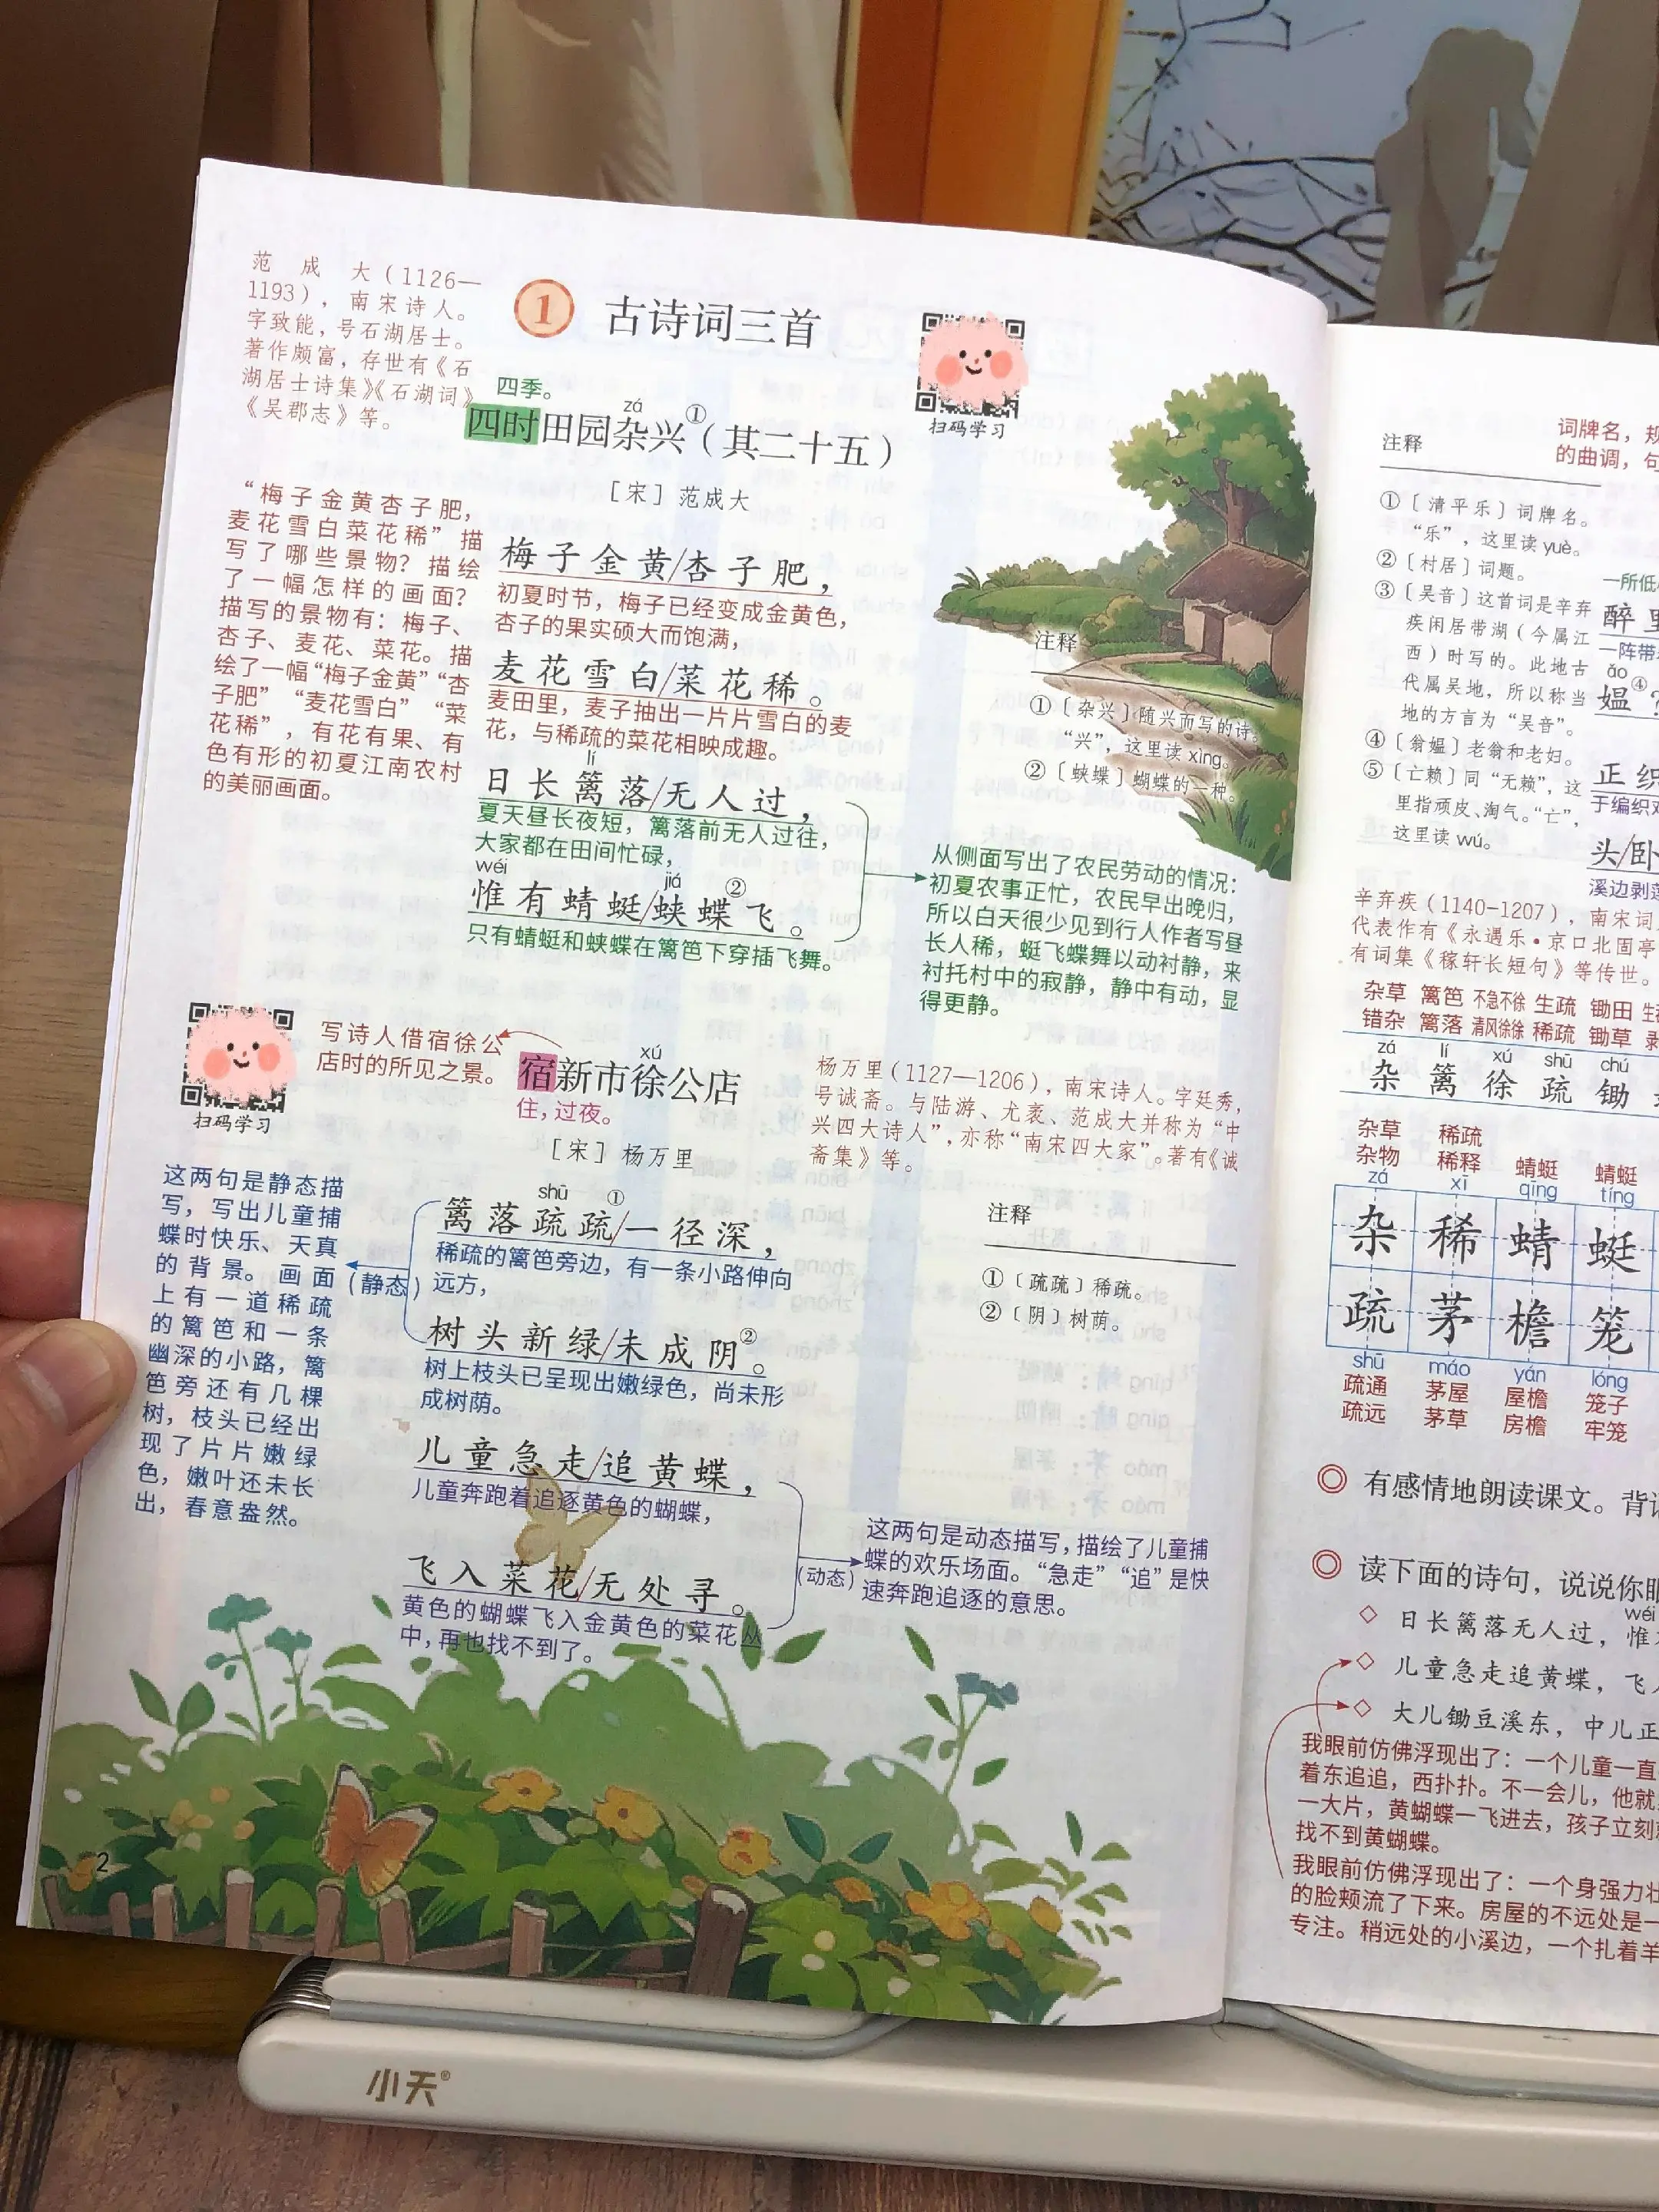 范成大（1126—
1193），南宋诗人。
字致能，号石湖居士。
著作颇富，存世有《石
湖居士诗集》《石湖词》
《吴郡志》等。
1 古诗词三首
扫码学习
四季。
zá
四时田园杂兴①（其二十五）
［宋］范成大
“梅子金黄杏子肥，
麦花雪白菜花稀”描
写了哪些景物？描绘
了一幅怎样的画面？
描写的景物有：梅子、
杏子、麦花、菜花。描
绘了一幅“梅子金黄”“杏
子肥”“麦花雪白”“菜
花稀”，有花有果、有
色有形的初夏江南农村
的美丽画面。
梅子金黄/杏子肥，
初夏时节，梅子已经变成金黄色，
杏子的果实硕大而饱满，
麦花雪白/菜花稀。
麦田里，麦子抽出一片片雪白的麦
花，与稀疏的菜花相映成趣。
lí
日长篱落/无人过，
夏天昼长夜短，篱落前无人过往，
大家都在田间忙碌，
wéi jiá
惟有蜻蜓/蛱蝶②飞。
只有蜻蜓和蛱蝶在篱笆下穿插飞舞。
注释
①〔杂兴〕随兴而写的诗。
“兴”，这里读 xìng。
②〔蛱蝶〕蝴蝶的一种。
从侧面写出了农民劳动的情况：
初夏农事正忙，农民早出晚归，
所以白天很少见到行人作者写昼
长人稀，蜓飞蝶舞以动衬静，来
衬托村中的寂静，静中有动，显
得更静。
扫码学习
写诗人借宿徐公
店时的所见之景。
xú
宿新市徐公店
住，过夜。
［宋］杨万里
杨万里（1127—1206），南宋诗人。字廷秀，
号诚斋。与陆游、尤袤、范成大并称为“中
兴四大诗人”，亦称“南宋四大家”。著有《诚
斋集》等。
这两句是静态描
写，写出儿童捕
蝶时快乐、天真
的背景。画面
上有一道稀疏
的篱笆和一条
幽深的小路，篱
笆旁还有几棵
树，枝头已经出
现了片片嫩绿
色，嫩叶还未长
出，春意盎然。
（静态）
shū
篱落疏疏①/一径深，
稀疏的篱笆旁边，有一条小路伸向
远方，
树头新绿/未成阴②。
树上枝头已呈现出嫩绿色，尚未形
成树荫。
儿童急走/追黄蝶，
儿童奔跑着追逐黄色的蝴蝶，
飞入菜花/无处寻。
黄色的蝴蝶飞入金黄色的菜花丛
中，再也找不到了。
注释
①〔疏疏〕稀疏。
②〔阴〕树荫。
（动态）
这两句是动态描写，描绘了儿童捕
蝶的欢乐场面。“急走”“追”是快
速奔跑追逐的意思。
2
词牌名，规
的曲调，句
注释
①〔清平乐〕词牌名。
“乐”，这里读 yuè。
②〔村居〕词题。
③〔吴音〕这首词是辛弃
疾闲居带湖（今属江
西）时写的。此地古
代属吴地，所以称当
地的方言为“吴音”。
④〔翁媪〕老翁和老妇。
⑤〔亡赖〕同“无赖”，这
里指顽皮、淘气。“亡”，
这里读 wú。
一所低
醉里
一阵带
ǎo
媪④？
正织
于编织
头/卧
溪边剥
辛弃疾（1140-1207），南宋词
代表作有《永遇乐·京口北固亭
有词集《稼轩长短句》等传世。
杂草 篱笆 不急不徐 生疏 锄田
错杂 篱落 清风徐徐 稀疏 锄草 剥
zá lí xú shū chú
杂 篱 徐 疏 锄
杂草 稀疏
杂物 稀释 蜻蜓 蜻蜓
zá xī qīng tíng
杂 稀 蜻 蜓
疏 茅 檐 笼
shū máo yán lóng
疏通 茅屋 屋檐 笼子
疏远 茅草 房檐 牢笼
◎ 有感情地朗读课文。背
◎ 读下面的诗句，说说你眼
wéi
◇ 日长篱落无人过，惟
◇ 儿童急走追黄蝶，飞
◇ 大儿锄豆溪东，中儿正
我眼前仿佛浮现出了：一个儿童一直
着东追追，西扑扑。不一会儿，他就
一大片，黄蝴蝶一飞进去，孩子立刻
找不到黄蝴蝶。
我眼前仿佛浮现出了：一个身强力壮
的脸颊流了下来。房屋的不远处是一
专注。稍远处的小溪边，一个扎着羊
小天®